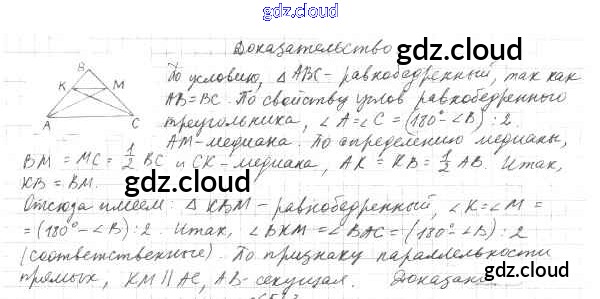 gdz.cloud
Доказательство
gdz.cloud
B
K M
A C
По условию, △ABC - равнобедренный, так как
AB=BC. По свойству углов равнобедренного
треугольника, ∠A=∠C = (180°-∠B) : 2.
gdz.cloud
AM-медиана. По определению медианы,
BM = MC = 1/2 BC и CK - медиана, AK = KB = 1/2 AB. Итак,
KB = BM.
gdz.cloud
Отсюда имеем: △KBM - равнобедренный, ∠K=∠M =
= (180°-∠B) : 2. Итак, ∠BKM = ∠BAC = (180°-∠B) : 2
(соответственные). По признаку параллельности
прямых, KM || AC, AB-секущая. Доказано.
gdz.cloud
gdz.cloud